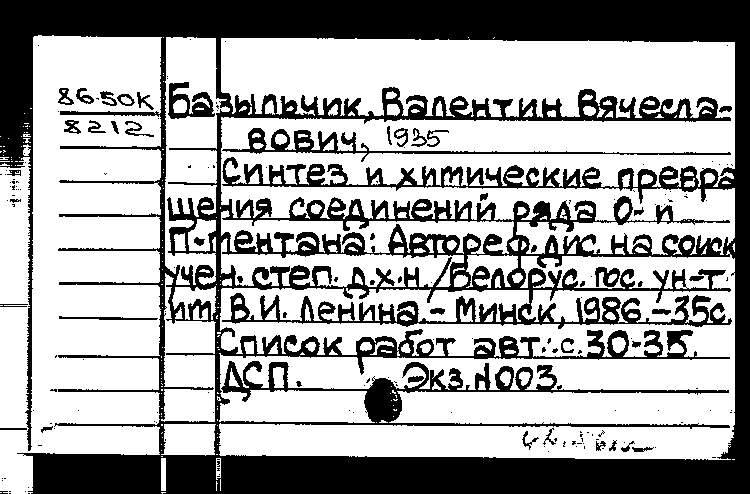 86-50К
8212
Базыльчик, Валентин Вячесла-
вович, 1935
Синтез и химические превра
щения соединений ряда О- и
П-ментана: Автореф. дис. на соиск
учен. степ. д.х.н. / Белорус. гос. ун-т
им. В.И. Ленина. - Минск, 1986. - 35с.
Список работ авт.: с. 30-35.
ДСП. Экз. N003.